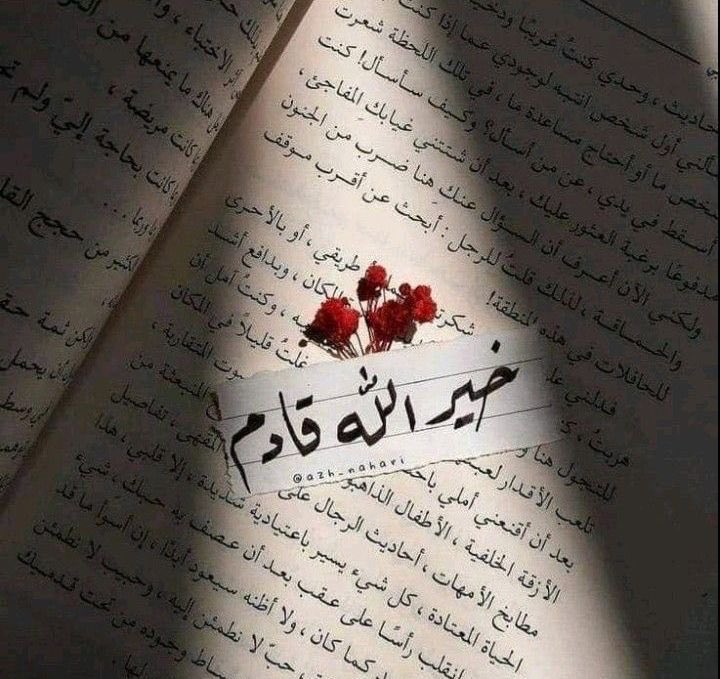 حاديث ، وحدي كنتُ غريبًا
ألني أول شخص انتبه لوجودي عما إذا كنت
شخص ما أو أحتاج مساعدة ما ، في تلك اللحظة شعرت
أسقط في يدي ، عن من أسأل؟ وكيف سأسأل! كنت
مدفوعًا برغبة العثور عليك ، بعد أن شتتني غيابك المفاجئ ،
ولكنني الآن أعرف أن السؤال عنك هنا ضرب من الجنون
والحماقة ، لذلك قلتُ للرجل : أبحث عن أقرب موقف
للحافلات في هذه المنطقة!
طريقي ، أو بالأحرى
المكان ، وبدافع أشد
وكنتُ آمل أن
غلتُ قليلاً في المكان
المتقاربة ،
المنبعثة من
تفاصيل
خير الله قادم
@azh_nahari
للتجول هنا
تلعب الأقدار لعبت
بعد أن أقنعني أملي
الأزقة الخلفية ، الأطفال الذاهبو
مطابخ الأمهات ، أحاديث الرجال على
الحياة المعتادة ، كل شيء يسير باعتيادية شديدة ، إلا قلبي ، هذا
انقلب رأسًا على عقب بعد أن عصف به حبك ، شيء
كما كان ، ولا أظنه سيعود أبدًا ، إن أسوأ ما قد
حبّ لا نطمئن إليه ، وحبيب لا نطمئن
بساط وجوده من تحت قدميك
لها .
الأختباء ، وأن
هناك ما يمنعها من
كانت مريضة ،
كانت بحاجة إليّ ولم
وربما ...
لكثير من حجج
لكن ثمة